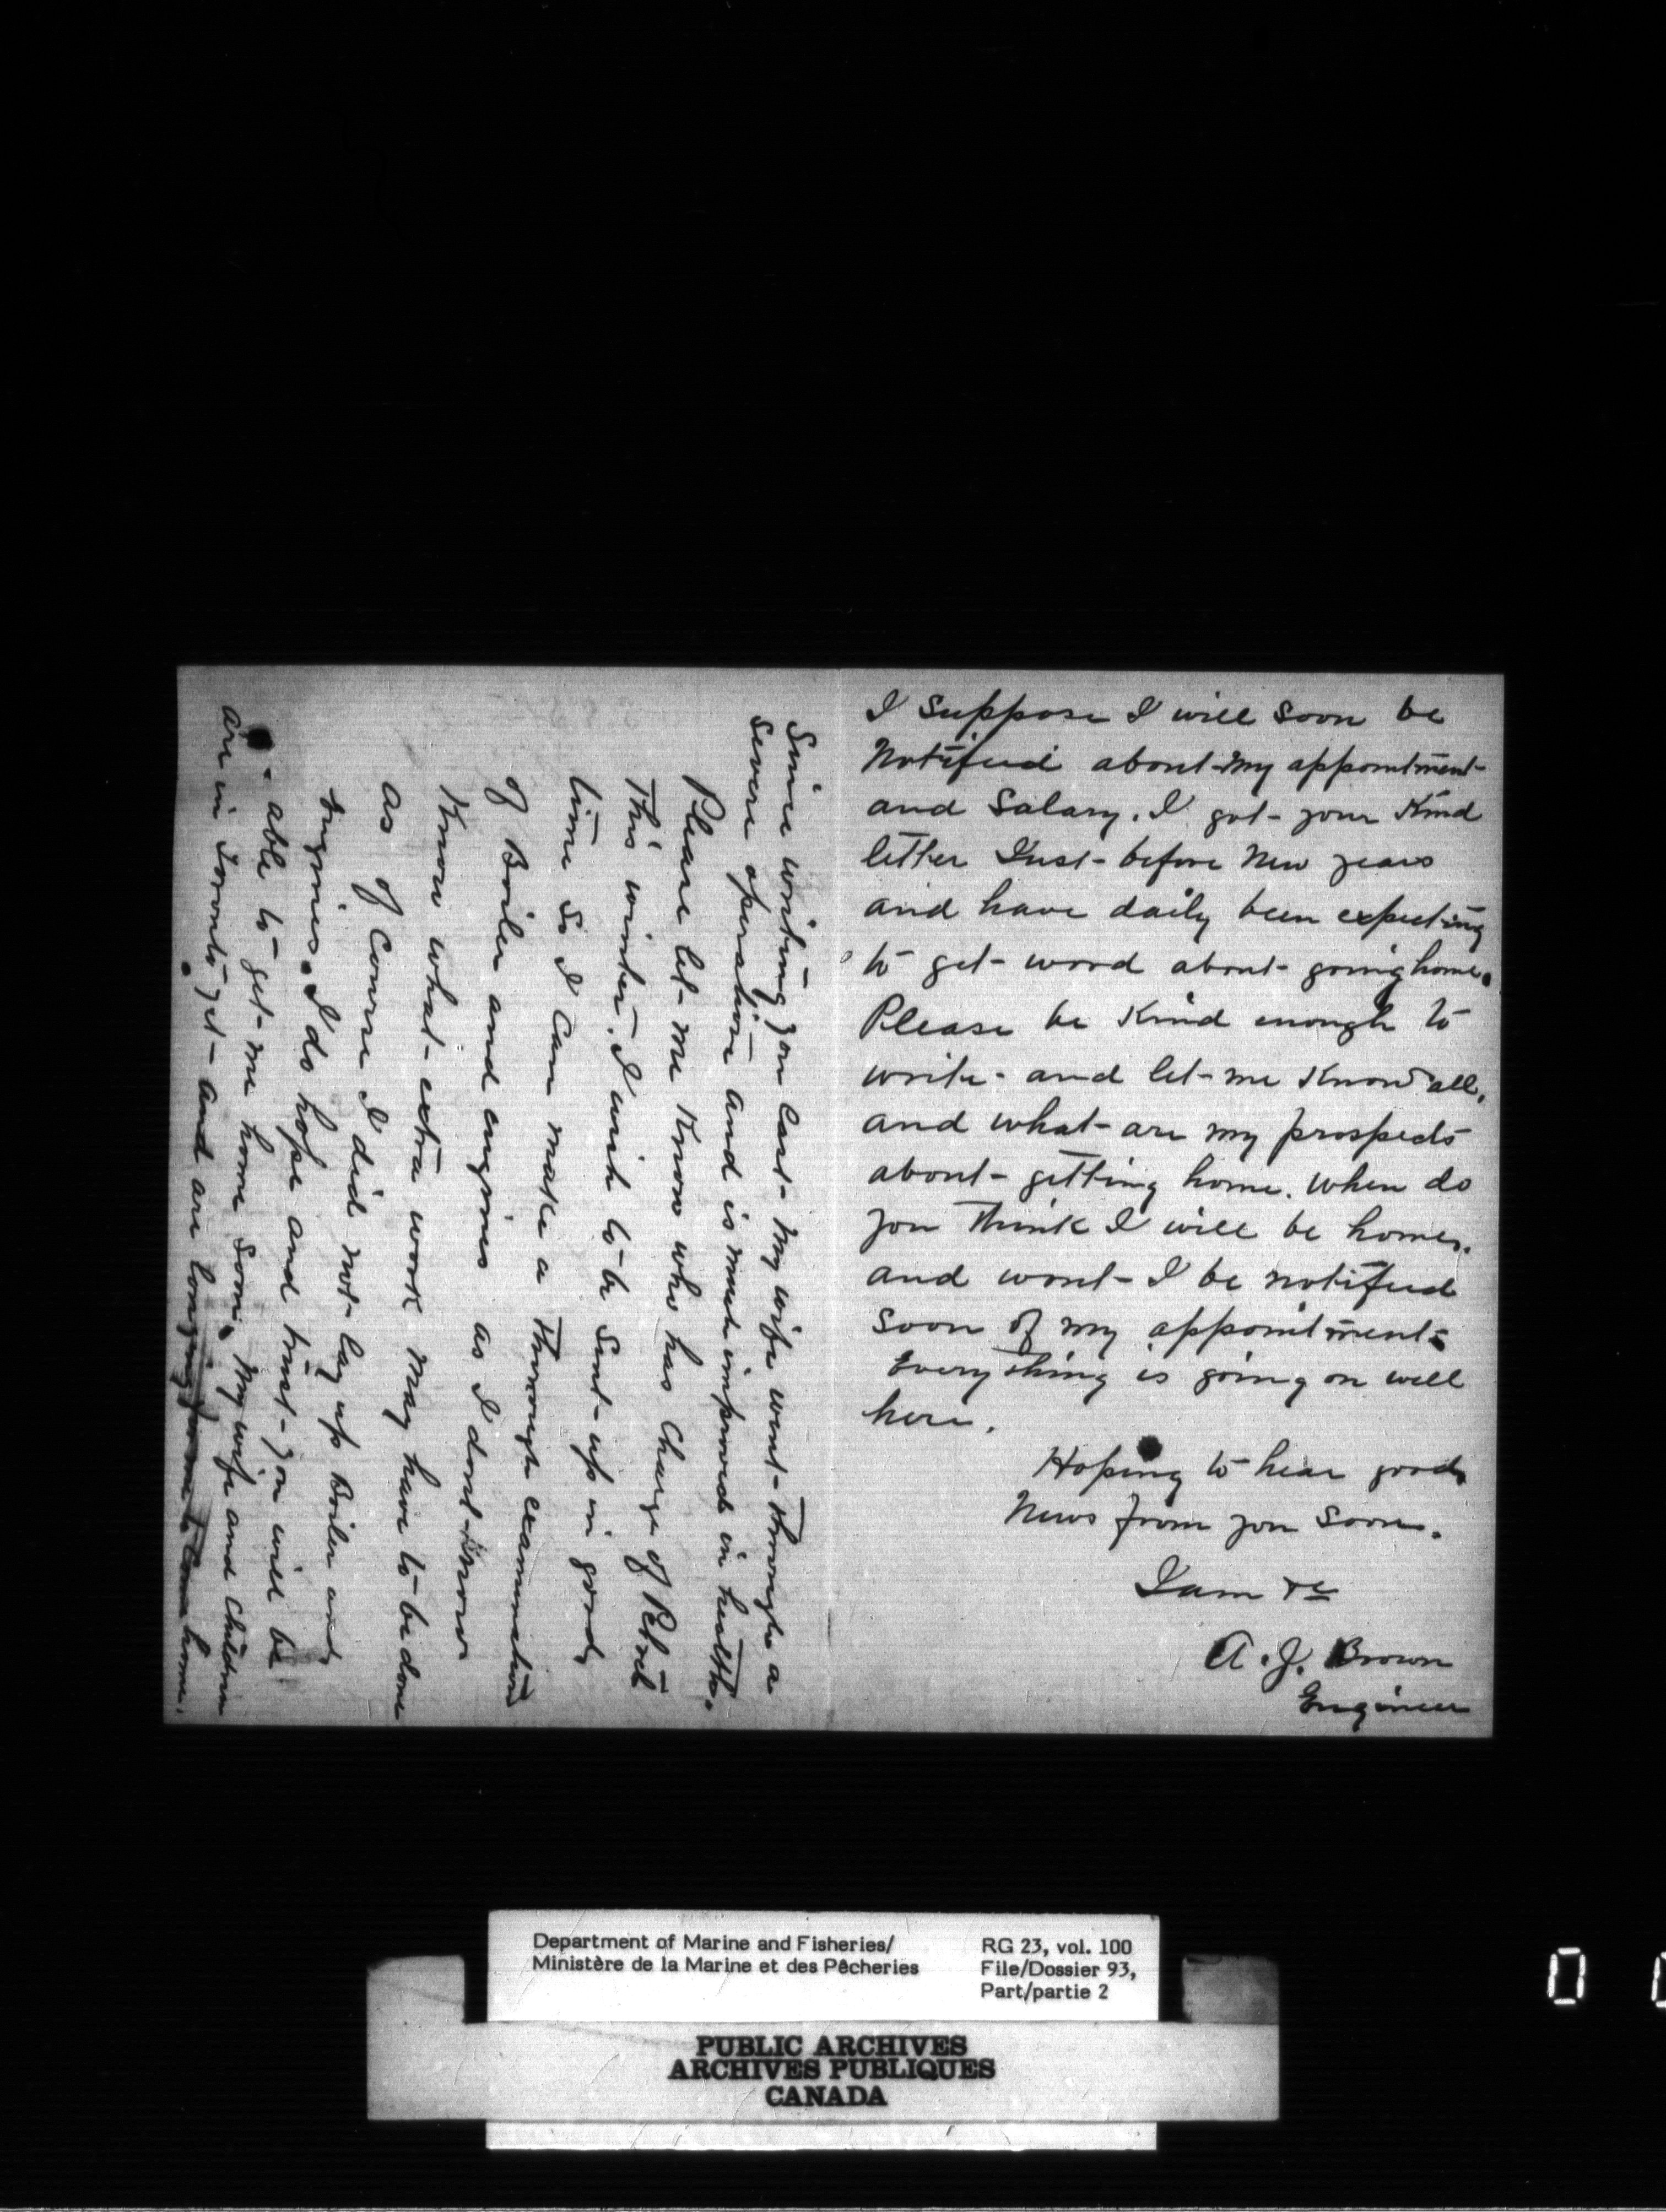 Since writing you last- My wife went- through a
severe operation and is much improved in health.
Please let- me Know who has Charge of Petrel
This winter. I wish to be sent- up in good
time so I can make a Thorough examination
of Boiler and engines as I dont- Know
Know what- extra work may have to be done
as of course I did not- lay up Boiler and
Engines. I do hope and trust- you will be
able to get- me home soon. My wife and Children
are in Toronto yet- and are longing for me to come home.
I suppose I will soon be
Notified about- my appointment-
and Salary. I got- your Kind
letter Just- before New years
and have daily been expecting
to get- word about- going home.
Please be Kind enough to
write- and let- me Know all,
and what- are my prospects
about- getting home. When do
you Think I will be home.
and wont- I be notified
soon of my appointment.
Everything is going on well
here.
Hoping to hear good
News from you soon.
I am &c
A. J. Brown
Engineer
Department of Marine and Fisheries/
Ministère de la Marine et des Pêcheries
RG 23, vol. 100
File/Dossier 93,
Part/partie 2
PUBLIC ARCHIVES
ARCHIVES PUBLIQUES
CANADA
0 0